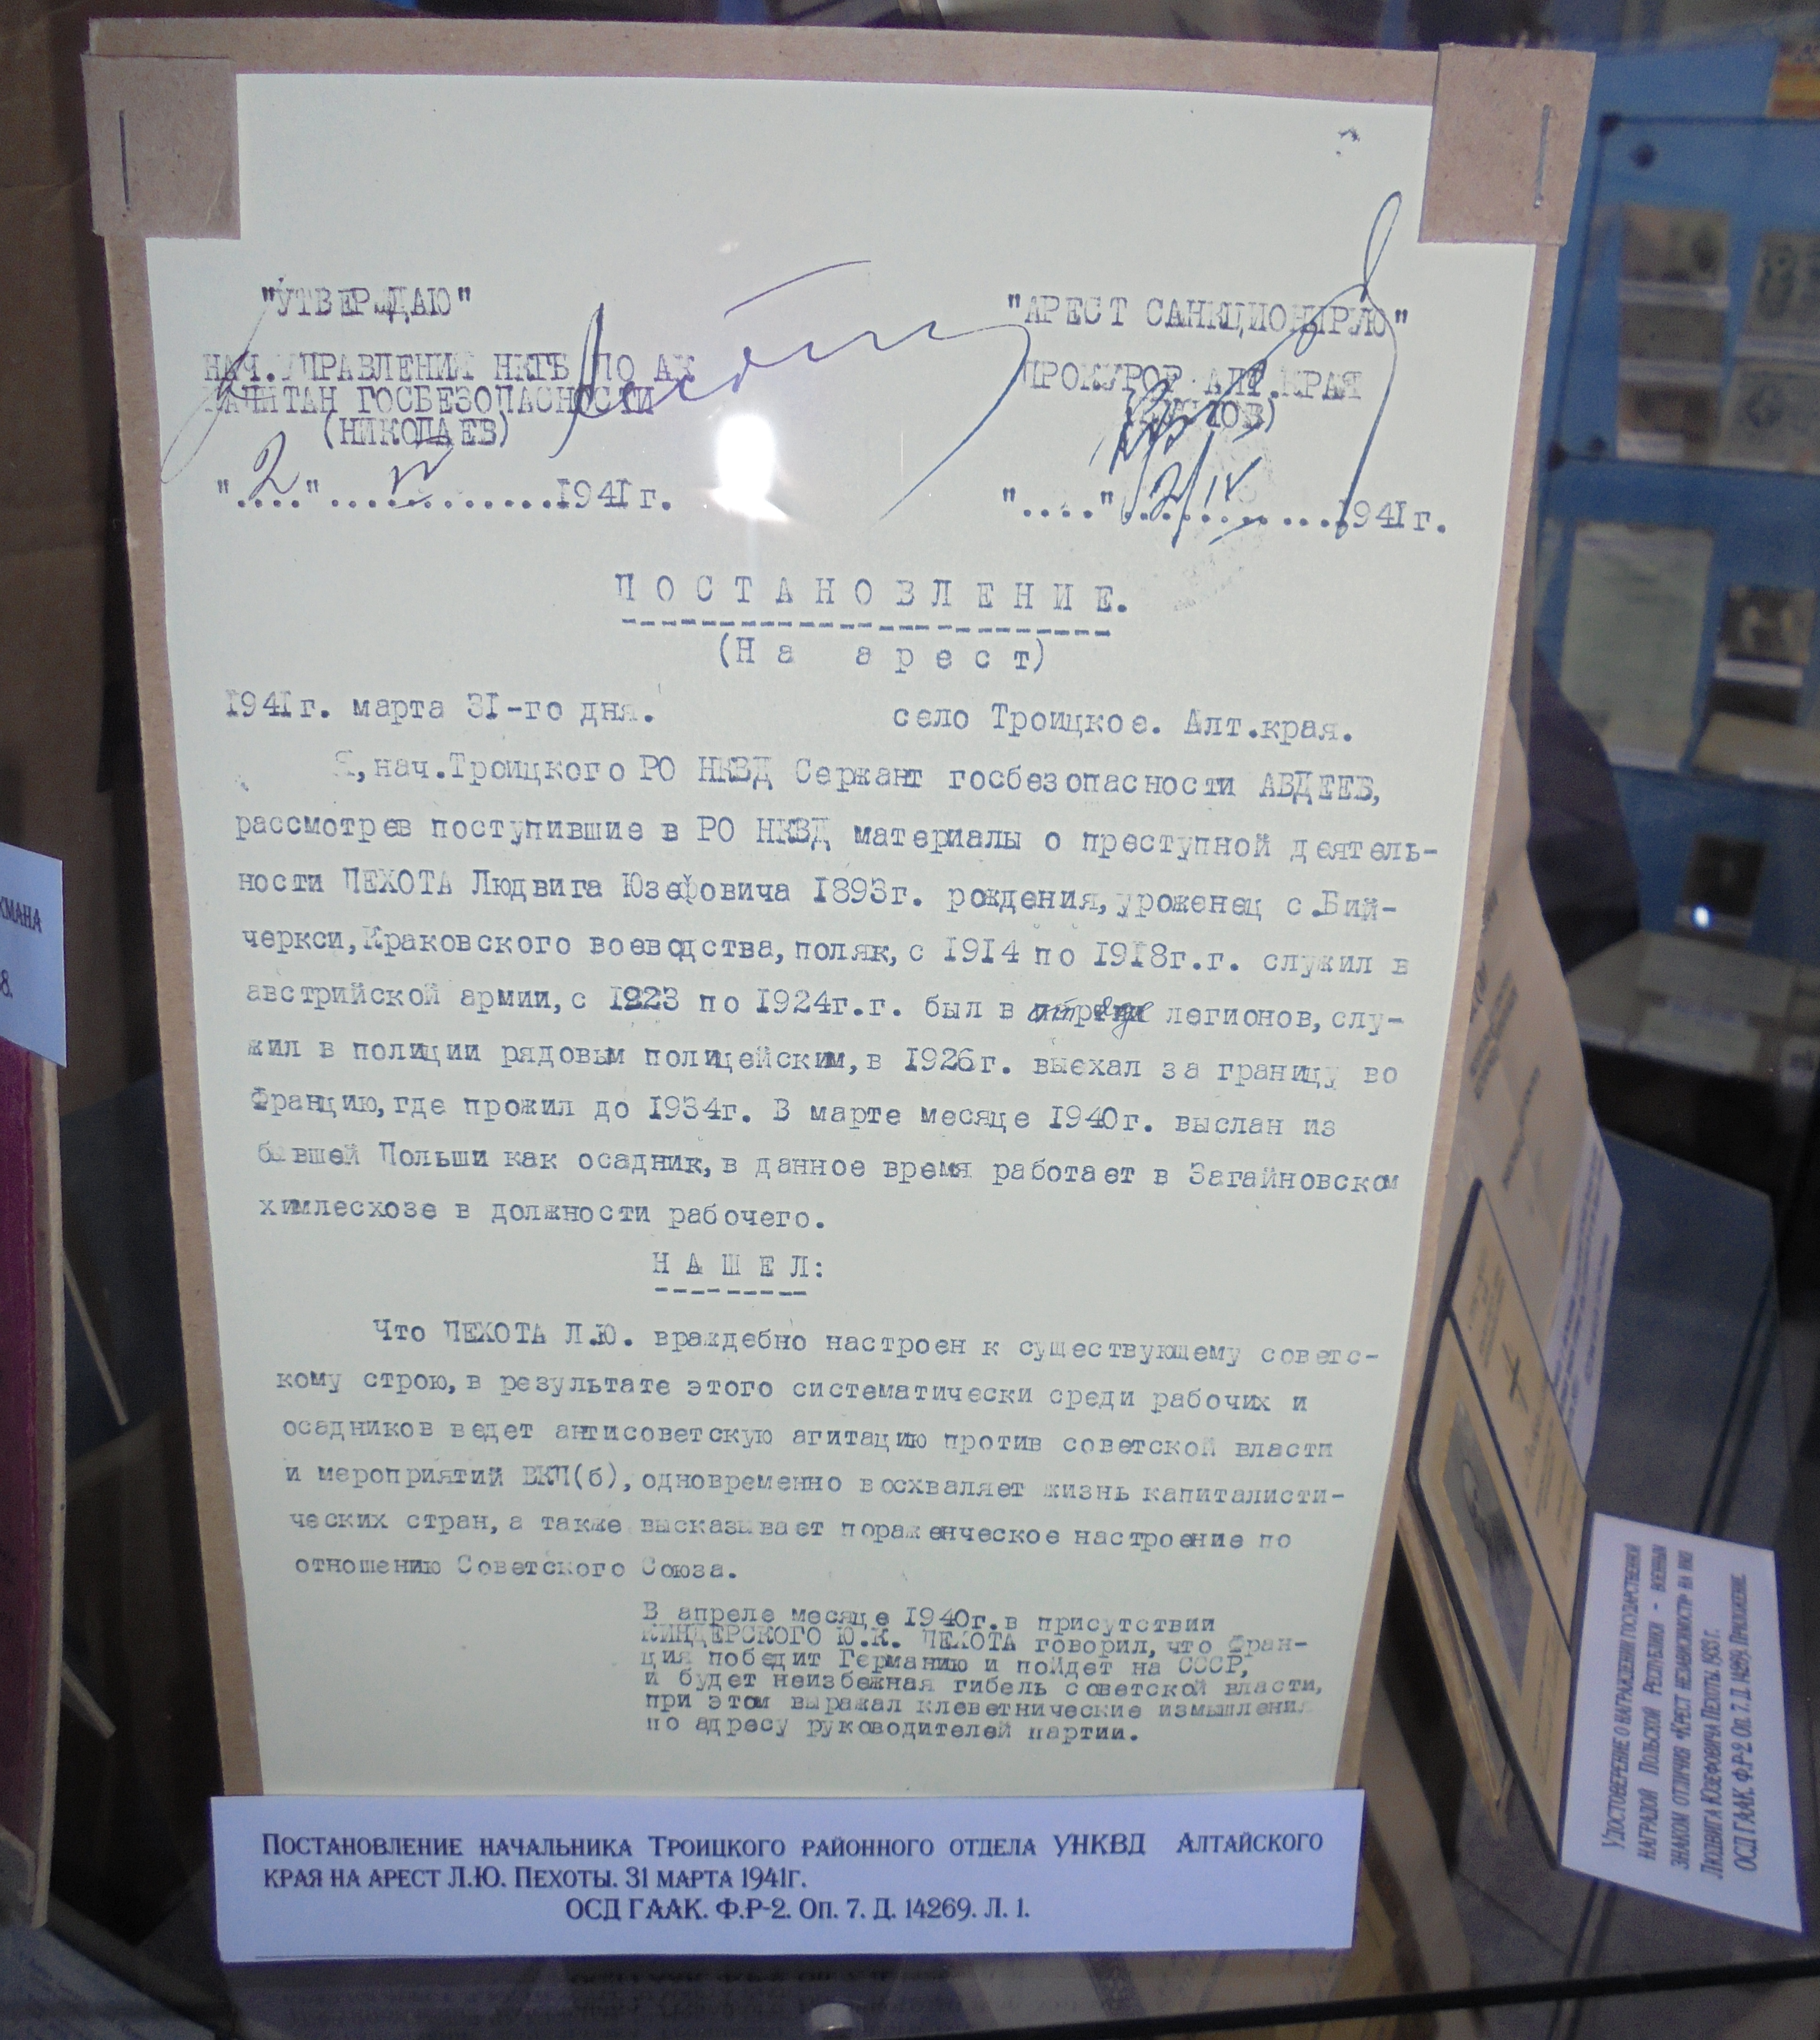 "УТВЕРЖДАЮ"
НАЧ.УПРАВЛЕНИЯ НКГБ ПО АК
КАПИТАН ГОСБЕЗОПАСНОСТИ
(НИКОЛАЕВ)
"2" IV 1941г.
"АРЕСТ САНКЦИОНИРУЮ"
ПРОКУРОР АЛТ.КРАЯ
"...." 2/IV 1941г.
ПОСТАНОВЛЕНИЕ.
(На арест)
1941г. марта 31-го дня. село Троицкое. Алт.края.
Я,нач.Троицкого РО НКВД Сержант госбезопасности АВДЕЕВ,
рассмотрев поступившие в РО НКВД материалы о преступной деятель-
ности ПЕХОТА Людвига Юзефовича 1893г. рождения,уроженец с.Бий-
черкси,Краковского воеводства,поляк,с 1914 по 1918г.г. служил в
австрийской армии,с 1923 по 1924г.г. был в легионов,слу-
жил в полиции рядовым полицейским,в 1926г. выехал за границу во
Францию,где прожил до 1934г. В марте месяце 1940г. выслан из
бывшей Польши как осадник,в данное время работает в Загайновском
химлесхозе в должности рабочего.
НАШЕЛ:
Что ПЕХОТА Л.Ю. враждебно настроен к существующему советс-
кому строю,в результате этого систематически среди рабочих и
осадников ведет антисоветскую агитацию против советской власти
и мероприятий ВКП(б),одновременно восхваляет жизнь капиталисти-
ческих стран,а также высказывает пораженческое настроение по
отношению Советского Союза.
В апреле месяце 1940г.в присутствии
КИНДЕРСКОГО Ю.К. ПЕХОТА говорил,что Фран-
ция победит Германию и пойдет на СССР,
и будет неизбежная гибель советской власти,
при этом выражал клеветнические измышления
по адресу руководителей партии.
Постановление начальника Троицкого районного отдела УНКВД Алтайского
края на арест Л.Ю. Пехоты. 31 марта 1941г.
ОСД ГААК. Ф.Р-2. Оп. 7. Д. 14269. Л. 1.
Удостоверение о награждении государственной
наградой Польской Республики - военным
знаком отличия «Крест независимости» на имя
Людвига Юзефовича Пехоты. 1933 г.
ОСД ГААК. Ф.Р-2. Оп. 7. Д. 14269. Приложение.
КМАНА
8.